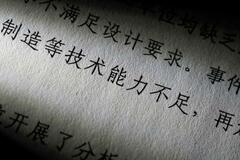 不满足设计要求。事件
制造等技术能力不足，再
开展了分